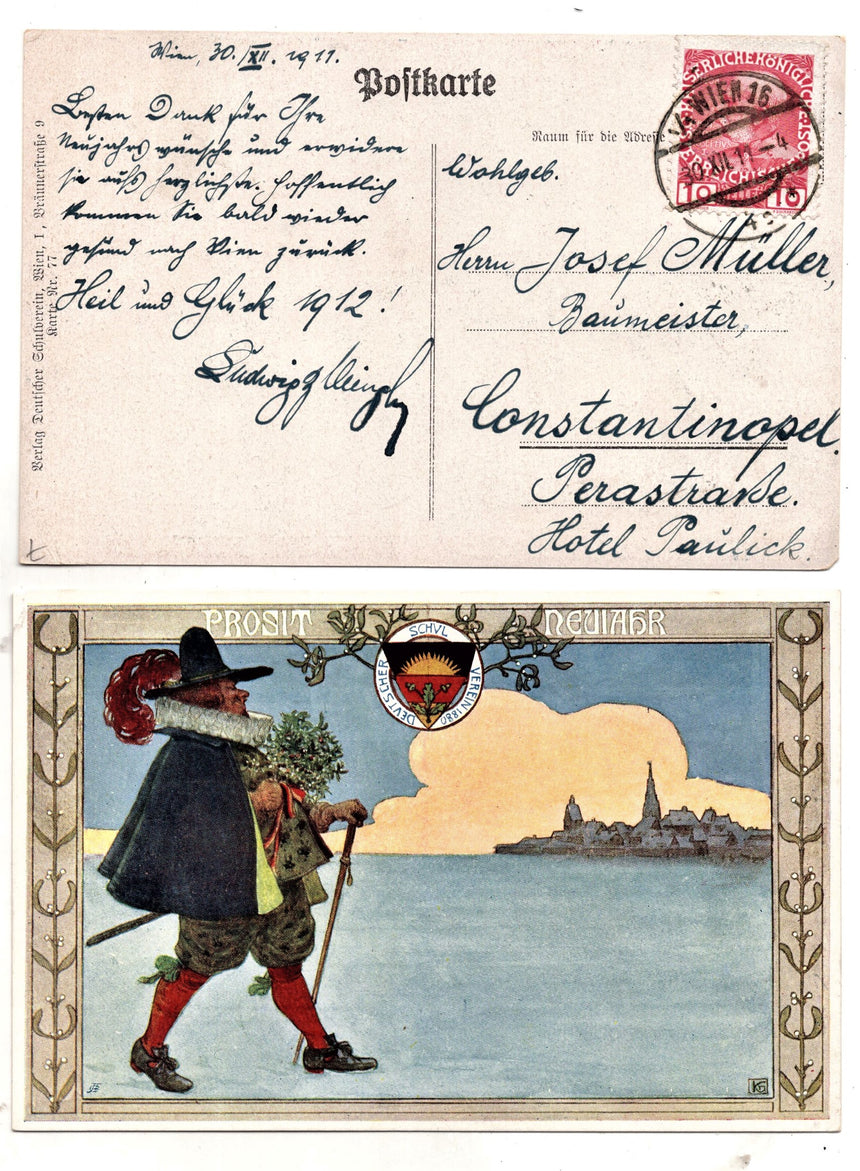 Wien, 30./XII. 1911.
Postkarte
Besten Dank für Ihre
Neujahrswünsche und erwidere
sie aufs herzlichste. Hoffentlich
kommen Sie bald wieder
gesund nach Wien zurück.
Heil und Glück 1912!
Ludwig
Verlag Deutscher Schulverein, Wien, I., Bräunerstraße 9
Karte Nr. 77
Raum für die Adresse
Wohlgeb.
Herrn Josef Müller,
Baumeister,
Constantinopel.
Perastraße.
Hotel Paulick.
WIEN 16
XII. 11 - 4
10 10
PROSIT NEUJAHR
DEUTSCHER SCHVL VEREIN 1880
KG